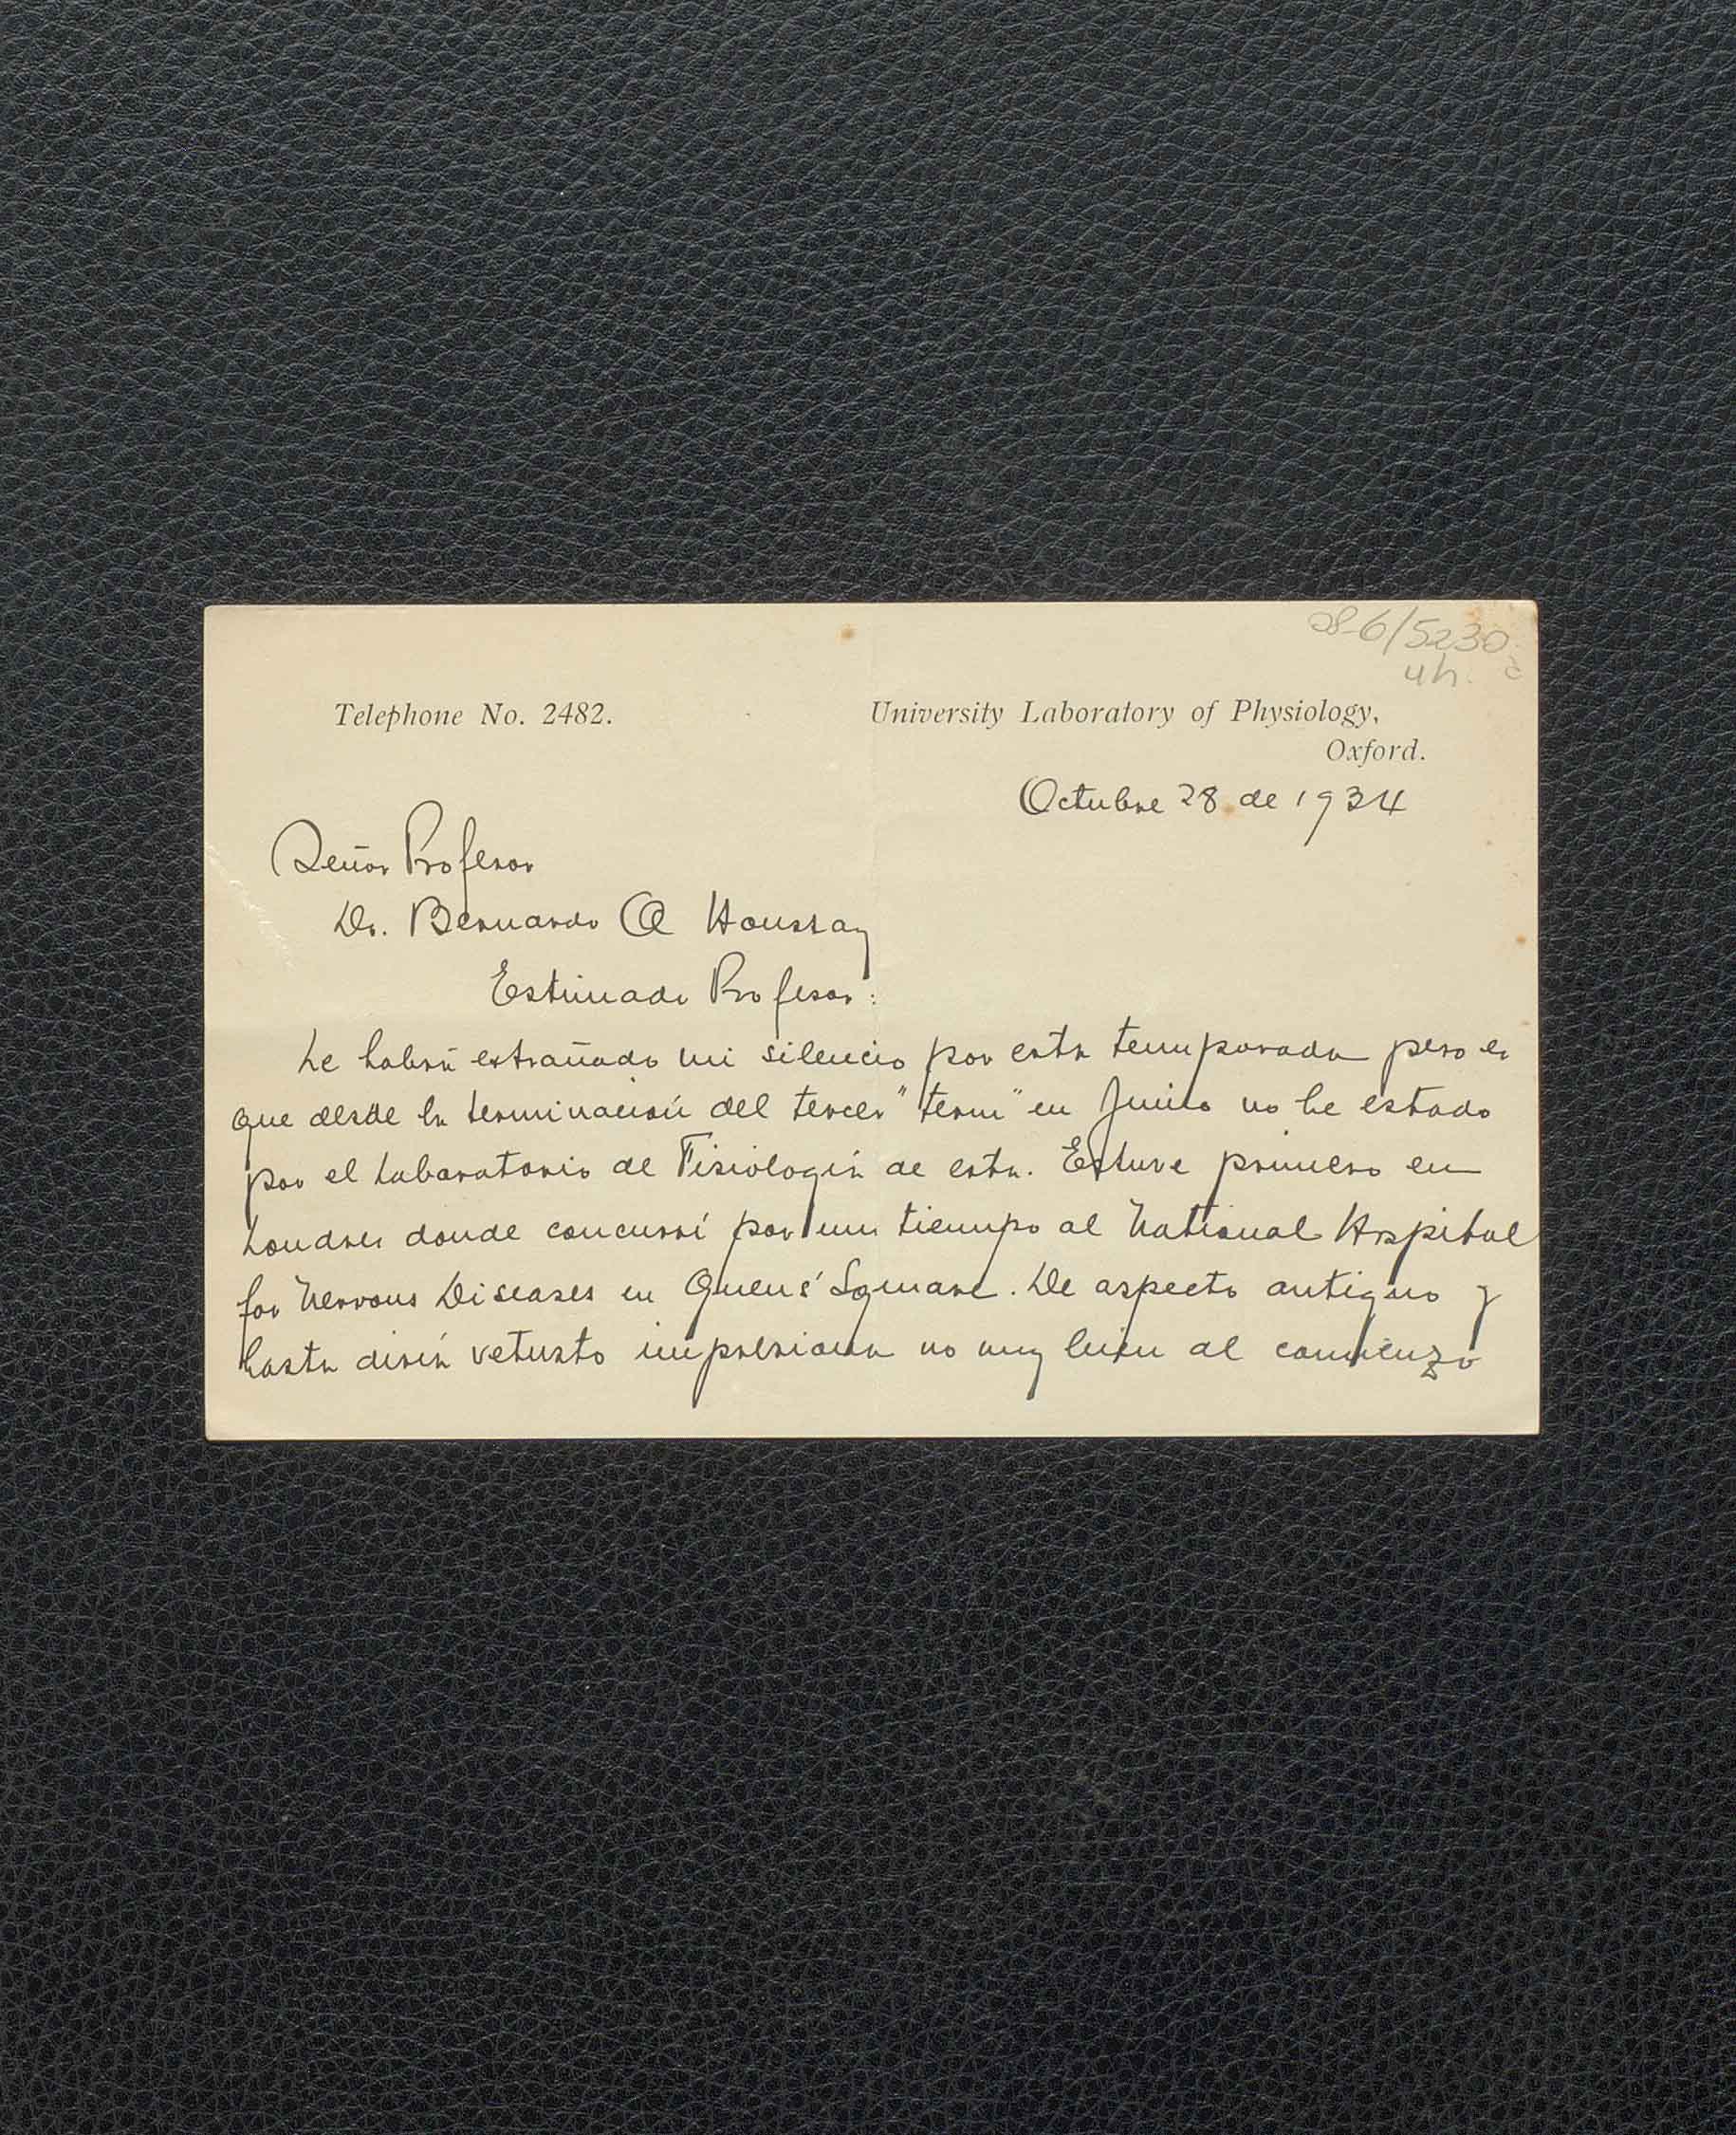 28-6/5230
4h.
Telephone No. 2482.
University Laboratory of Physiology,
Oxford.
Octubre 28 de 1934
Señor Profesor
Dr. Bernardo A Houssay
Estimado Profesor:
Le habrá extrañado mi silencio por esta temporada pero es
que desde la terminación del tercer "term" en Junio no he estado
por el Laboratorio de Fisiología de esta. Estuve primero en
Londres donde concurrí por un tiempo al National Hospital
for Nervous Diseases en Queens' Square. De aspecto antiguo y
hasta diría vetusto impresiona no muy bien al comienzo